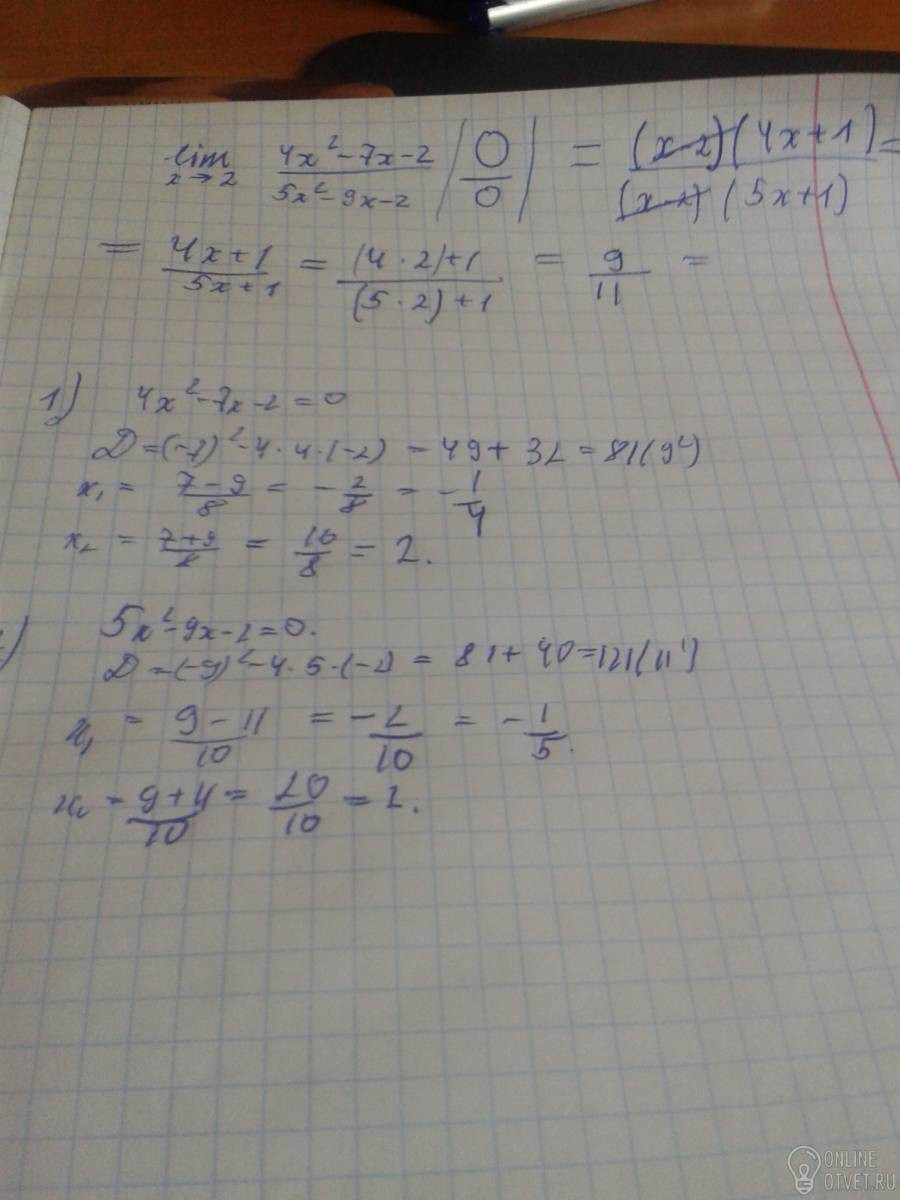 lim x→2 4x²-7x-2 / 5x²-9x-2 |0/0| = (x-2)(4x+1) / (x-2)(5x+1) =
= 4x+1 / 5x+1 = (4·2)+1 / (5·2)+1 = 9/11 =
1) 4x²-7x-2=0
D=(-7)²-4·4·(-2) = 49+32=81(9²)
x₁ = 7-9/8 = -2/8 = -1/4
x₂ = 7+9/8 = 16/8 = 2.
5x²-9x-2=0.
D=(-9)²-4·5·(-2) = 81+40=121(11²)
x₁ = 9-11/10 = -2/10 = -1/5.
x₂ = 9+11/10 = 20/10 = 2.
ONLINE
OTVET.RU